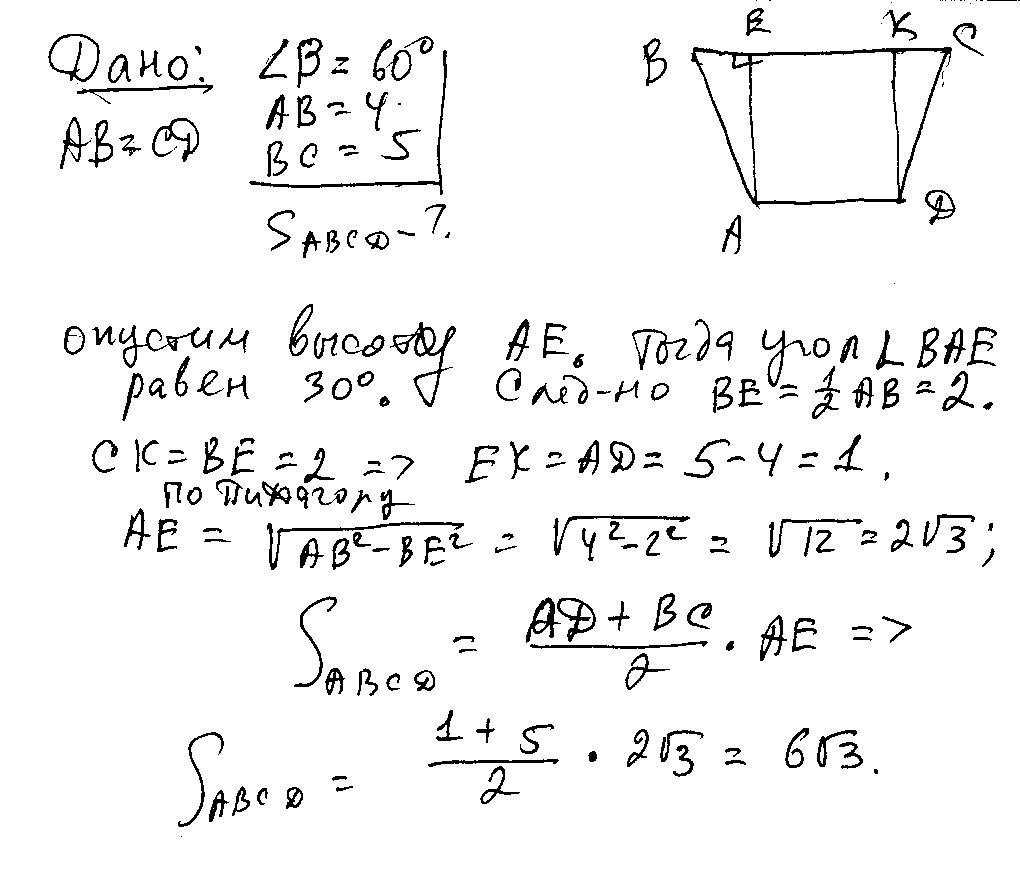 Дано: ∠B = 60°
AB = CD AB = 4.
BC = 5
S ABCD - ?
B E K C
A D
опустим высоту AE. Тогда угол ∠BAE
равен 30°. След-но BE = 1/2 AB = 2.
CK = BE = 2 => EK = AD = 5 - 4 = 1.
по Пифагору
AE = √(AB² - BE²) = √(4² - 2²) = √12 = 2√3;
S ABCD = (AD + BC)/2 · AE =>
S ABCD = (1 + 5)/2 · 2√3 = 6√3.